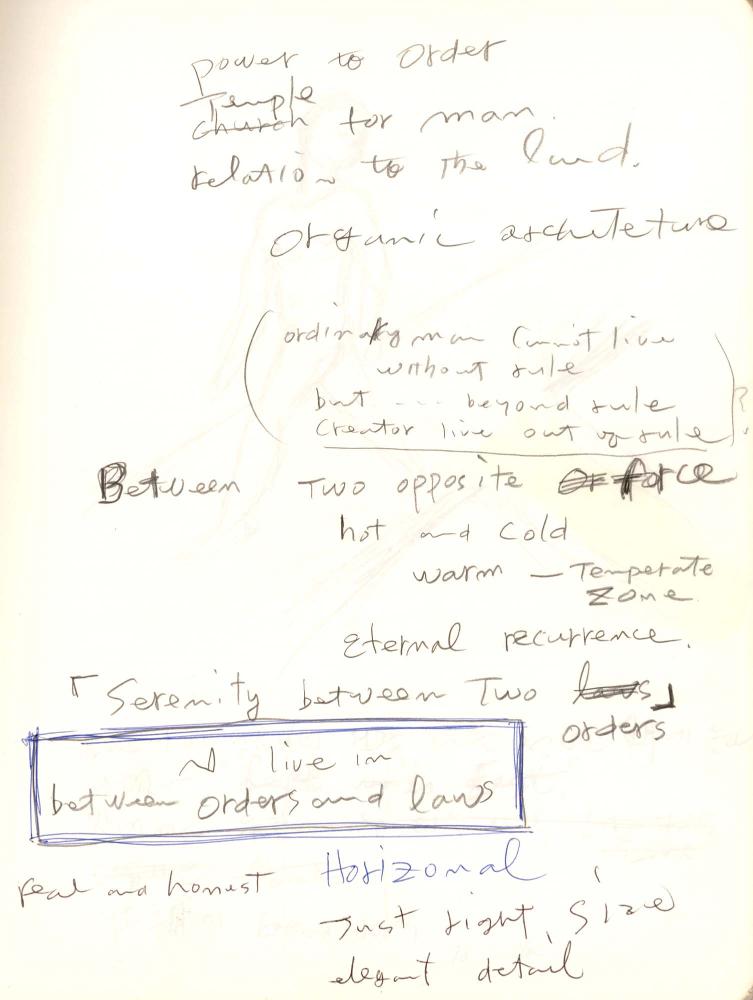 power to order
Temple
church for man.
relation to the land.
organic architeture
(ordinary man cannot live
without rule
but --- beyond rule
Creator live out of rule)?
Between Two opposite or force
hot and cold
warm — Temperate
zone
Eternal recurrence.
「Serenity between Two laws」
orders
live in
between orders and laws
Horizonal
real and honest
Just right size
elegant detail